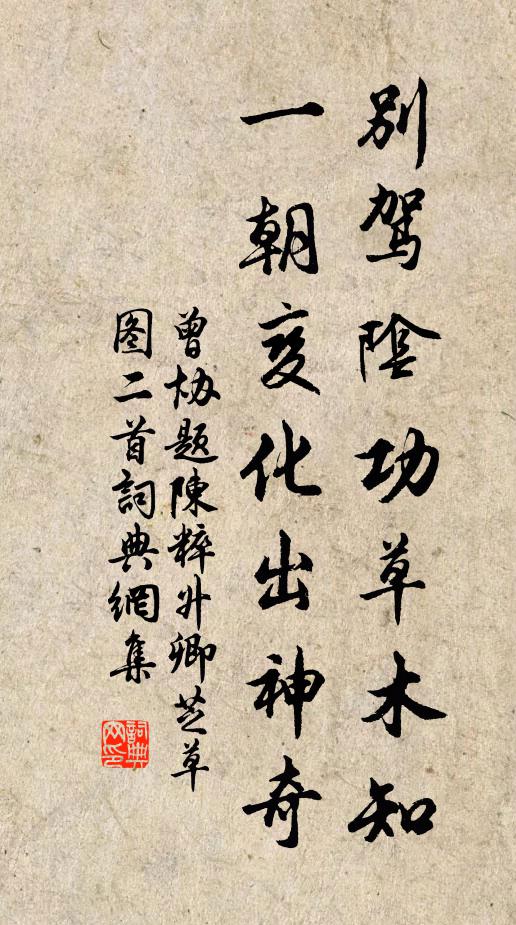 別駕陰功草木知
一朝变化出神奇
曾协题陳粹升卿芝草
图二首詞典網集
詞典